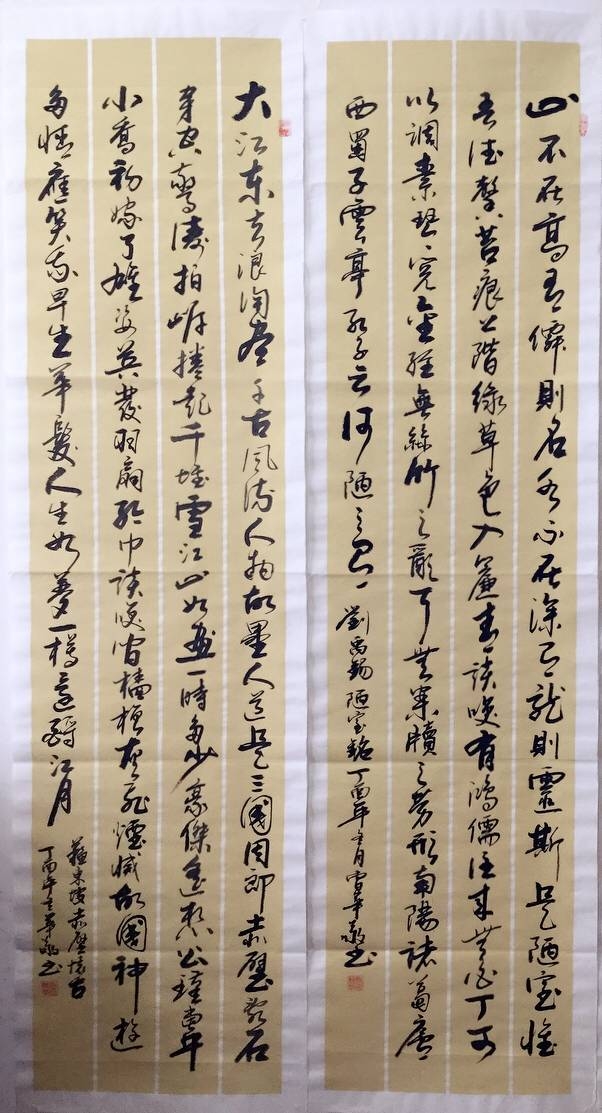 山不在高有僊則名水不在深有龍則靈斯是陋室惟
吾德馨苔痕上階綠草色入簾青談笑有鴻儒往來無白丁可
以調素琴閱金經無絲竹之亂耳無案牘之勞形南陽諸葛廬
西蜀子雲亭孔子云何陋之有 劉禹錫陋室銘丁酉年冬月
大江東去浪淘盡千古風流人物故壘人道是三國周郎赤壁亂石
穿空驚濤拍岸捲起千堆雪江山如畫一時多少豪傑遙想公瑾當年
小喬初嫁了雄姿英發羽扇綸巾談笑間檣櫓灰飛煙滅故國神遊
多情應笑我早生華髮人生如夢一樽還酹江月
蘇東坡赤壁懷古
丁酉年冬